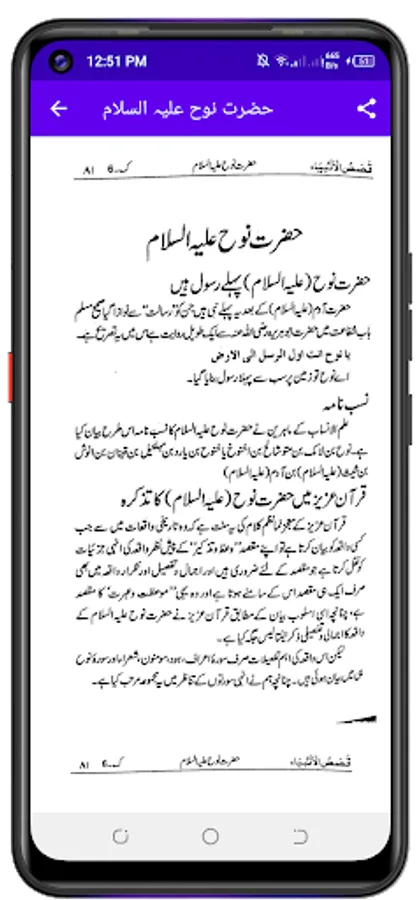 12:51 PM
665 B/s
51
حضرت نوح علیہ السلام
قَصَصُ الْاَنْبِیَاء حضرت نوح علیہ السلام ک۔۔6 Al
حضرت نوح علیہ السلام
حضرت نوح (علیہ السلام) پہلے رسول ہیں
حضرت آدم (علیہ السلام) کے بعد یہ پہلے نبی ہیں جن کو "رسالت" سے نوازا گیا صحیح مسلم
باب شفاعت میں حضرت ابوہریرہ رضی اللہ عنہ سے ایک طویل روایت ہے اس میں یہ تصریح ہے۔
یا نوح انت اول الرسل الی الارض
اے نوح تو زمین پر سب سے پہلا رسول بنایا گیا۔
نسب نامہ
علم الانساب کے ماہرین نے حضرت نوح علیہ السلام کا نسب نامہ اس طرح بیان کیا
ہے۔ نوح بن لامک بن متوشالح بن اخنوخ یا خنوخ بن یارد بن مہلئیل بن قینان بن انوش
بن شیث (علیہ السلام) بن آدم (علیہ السلام)
قرآن عزیز میں حضرت نوح (علیہ السلام) کا تذکرہ
قرآن عزیز کے معجزانہ نظم کلام کی یہ سنت ہے کہ وہ تاریخی واقعات میں سے جب
کسی واقعہ کو بیان کرتا ہے تو اپنے مقصد "وعظ و تذکیر" کے پیش نظر واقعہ کی انہی جزئیات
کو نقل کرتا ہے جو مقصد کے لئے ضروری ہیں اور اجمال و تفصیل اور تکرار واقعہ میں بھی
صرف ایک ہی مقصد اس کے سامنے ہوتا ہے اور وہ یہی "موعظت و عبرت" کا مقصد
ہے، چنانچہ اسی اسلوب بیان کے مطابق قرآن عزیز نے حضرت نوح علیہ السلام کے
واقعہ کا اجمالی و تفصیلی ذکر تینتالیس جگہ کیا ہے۔
لیکن اس واقعہ کی اہم تفصیلات صرف سورۃ اعراف، ہود، مومنون، شعراء اور سورۃ نوح
ہی میں بیان ہوئی ہیں۔ چنانچہ ہم نے انہی سورتوں کے تناظر میں یہ مجموعہ مرتب کیا ہے۔
قَصَصُ الْاَنْبِیَاء حضرت نوح علیہ السلام ک۔۔6 Al